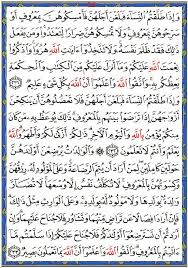 وَإِذَا طَلَّقْتُمُ النِّسَاءَ فَبَلَغْنَ أَجَلَهُنَّ فَأَمْسِكُوهُنَّ
بِمَعْرُوفٍ أَوْ سَرِّحُوهُنَّ بِمَعْرُوفٍ وَلَا تُمْسِكُوهُنَّ ضِرَارًا لِّتَعْتَدُوا وَمَن يَفْعَلْ
ذَٰلِكَ فَقَدْ ظَلَمَ نَفْسَهُ وَلَا تَتَّخِذُوا آيَاتِ اللَّهِ هُزُوًا وَاذْكُرُوا
نِعْمَتَ اللَّهِ عَلَيْكُمْ وَمَا أَنزَلَ عَلَيْكُم مِّنَ الْكِتَابِ وَالْحِكْمَةِ
يَعِظُكُم بِهِ وَاتَّقُوا اللَّهَ وَاعْلَمُوا أَنَّ اللَّهَ بِكُلِّ شَيْءٍ عَلِيمٌ
وَإِذَا طَلَّقْتُمُ النِّسَاءَ فَبَلَغْنَ أَجَلَهُنَّ فَلَا تَعْضُلُوهُنَّ أَن يَنكِحْنَ
أَزْوَاجَهُنَّ إِذَا تَرَاضَوْا بَيْنَهُم بِالْمَعْرُوفِ ذَٰلِكَ يُوعَظُ بِهِ مَن كَانَ
مِنكُمْ يُؤْمِنُ بِاللَّهِ وَالْيَوْمِ الْآخِرِ ذَٰلِكُمْ أَزْكَىٰ لَكُمْ وَأَطْهَرُ وَاللَّهُ
يَعْلَمُ وَأَنتُمْ لَا تَعْلَمُونَ وَالْوَالِدَاتُ يُرْضِعْنَ أَوْلَادَهُنَّ
حَوْلَيْنِ كَامِلَيْنِ لِمَنْ أَرَادَ أَن يُتِمَّ الرَّضَاعَةَ وَعَلَى الْمَوْلُودِ لَهُ رِزْقُهُنَّ
وَكِسْوَتُهُنَّ بِالْمَعْرُوفِ لَا تُكَلَّفُ نَفْسٌ إِلَّا وُسْعَهَا لَا تُضَارَّ
وَالِدَةٌ بِوَلَدِهَا وَلَا مَوْلُودٌ لَّهُ بِوَلَدِهِ وَعَلَى الْوَارِثِ مِثْلُ ذَٰلِكَ فَإِنْ
أَرَادَا فِصَالًا عَن تَرَاضٍ مِّنْهُمَا وَتَشَاوُرٍ فَلَا جُنَاحَ عَلَيْهِمَا وَإِنْ
أَرَدتُّمْ أَن تَسْتَرْضِعُوا أَوْلَادَكُمْ فَلَا جُنَاحَ عَلَيْكُمْ إِذَا سَلَّمْتُم مَّا
آتَيْتُم بِالْمَعْرُوفِ وَاتَّقُوا اللَّهَ وَاعْلَمُوا أَنَّ اللَّهَ بِمَا تَعْمَلُونَ بَصِيرٌ